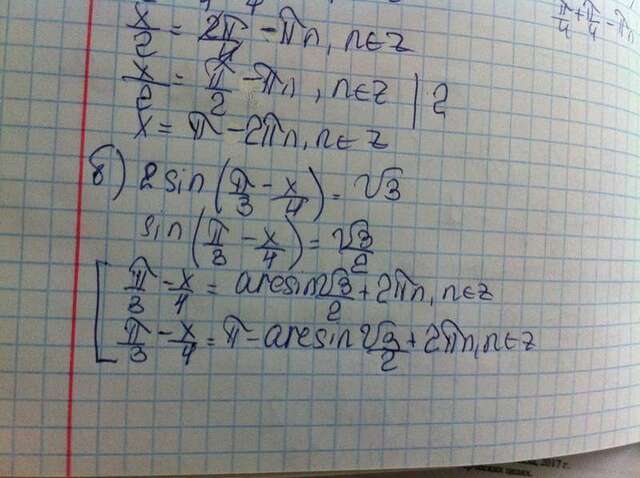 x/2 = 2π/4 - πn, n∈z
π/4 + π/4 - πn
x/2 = π/2 - πn, n∈z | 2
x = π - 2πn, n∈z
б) 2sin(π/3 - x/4) = √3
sin(π/3 - x/4) = √3/2
[ π/3 - x/4 = arcsin √3/2 + 2πn, n∈z
π/3 - x/4 = π - arcsin √3/2 + 2πn, n∈z
2017 г.